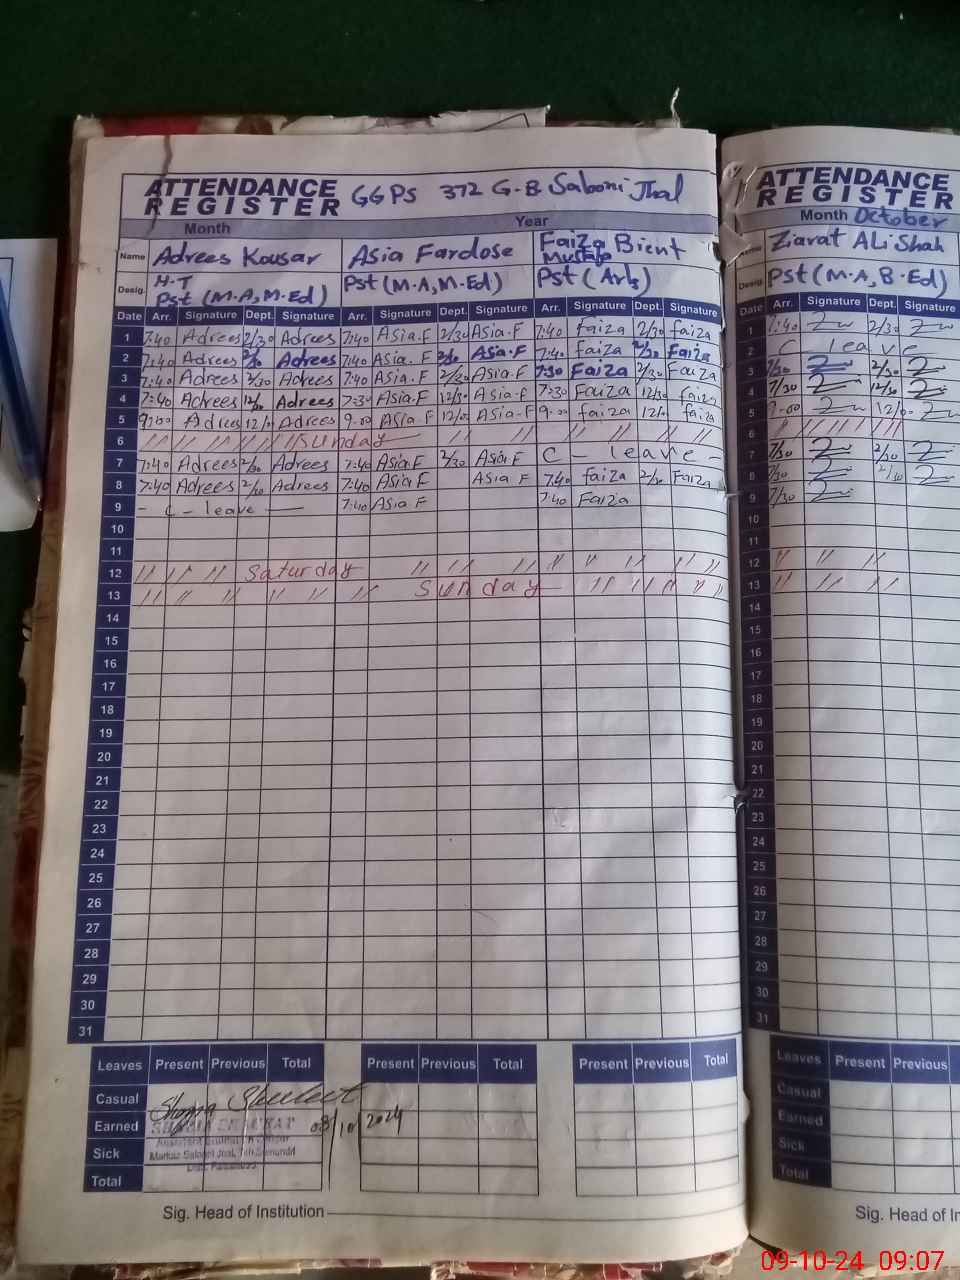 ATTENDANCE REGISTER GGPS 372 G.B Saboni Jhal
Month Year
Name Adrees Kousar Asia Fardose Faiza Bient Mustafa
Desig. H.T Pst (M.A, M.Ed) Pst (M.A, M.Ed) Pst (Arts)
Date Arr. Signature Dept. Signature Arr. Signature Dept. Signature Arr. Signature Dept. Signature
1 7:40 Adrees 2/30 Adrees 7:40 Asia.F 2/30 Asia.F 7:40 faiza 2/30 faiza
2 7:40 Adrees 2/30 Adrees 7:40 Asia.F 2/30 Asia.F 7:40 faiza 2/30 Faiza
3 7:40 Adrees 2/30 Adrees 7:40 Asia.F 2/30 Asia.F 7:30 Faiza 2/30 Faiza
4 7:40 Adrees 12/30 Adrees 7:30 Asia.F 12/30 Asia.F 7:30 Faiza 12/30 faiza
5 9:00 Adrees 12/00 Adrees 9:00 Asia.F 12/00 Asia-F 9:00 faiza 12/00 faiza
6 Sunday
7 7:40 Adrees 2/30 Adrees 7:40 Asia F 2/30 Asia F C - leave -
8 7:40 Adrees 2/30 Adrees 7:40 Asia F Asia F 7:40 faiza 2/30 Faiza
9 - C - leave - 7:40 Asia F 7:40 Faiza
10
11
12 Saturday
13 Sunday
14
15
16
17
18
19
20
21
22
23
24
25
26
27
28
29
30
31
Leaves Present Previous Total Present Previous Total Present Previous Total
Casual
Earned 08/10/2024
Sick
Total
Sig. Head of Institution
ATTENDANCE REGISTER
Month October
Ziarat Ali Shah
Desig. Pst (M.A, B.Ed)
Date Arr. Signature Dept. Signature
1 7:40 2/30
2 C leave
3 7/30 2/30
4 7/30 12/30
5 9-00 12/00
6
7 7/30 2/30
8 7/30 2/30
9 7/30
10
11
12
13
14
15
16
17
18
19
20
21
22
23
24
25
26
27
28
29
30
31
Leaves Present Previous
Casual
Earned
Sick
Total
Sig. Head of
09-10-24 09:07